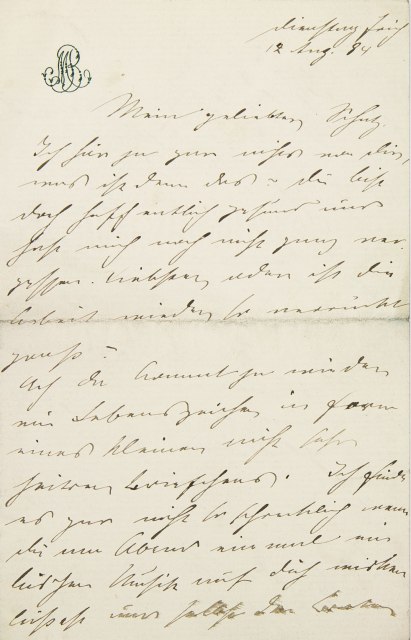 Dienstag früh
12 Aug. 84
Mein geliebter Schatz.
Ich höre ja gar nichts von dir,
was ist denn das? du bist
doch hoffentlich gesund und
hast mich noch nicht ganz ver-
gessen. Liebster, oder ist die
Arbeit wieder so verrückt
groß?
Ach da kommt ja wieder
ein Lebenszeichen in Form
eines kleinen nicht sehr
heitren Briefchens. Ich finde
es gar nicht so schrecklich wenn
du am Abend einmal ein
bischen Musik auf dich wirken
läßest und selbst der